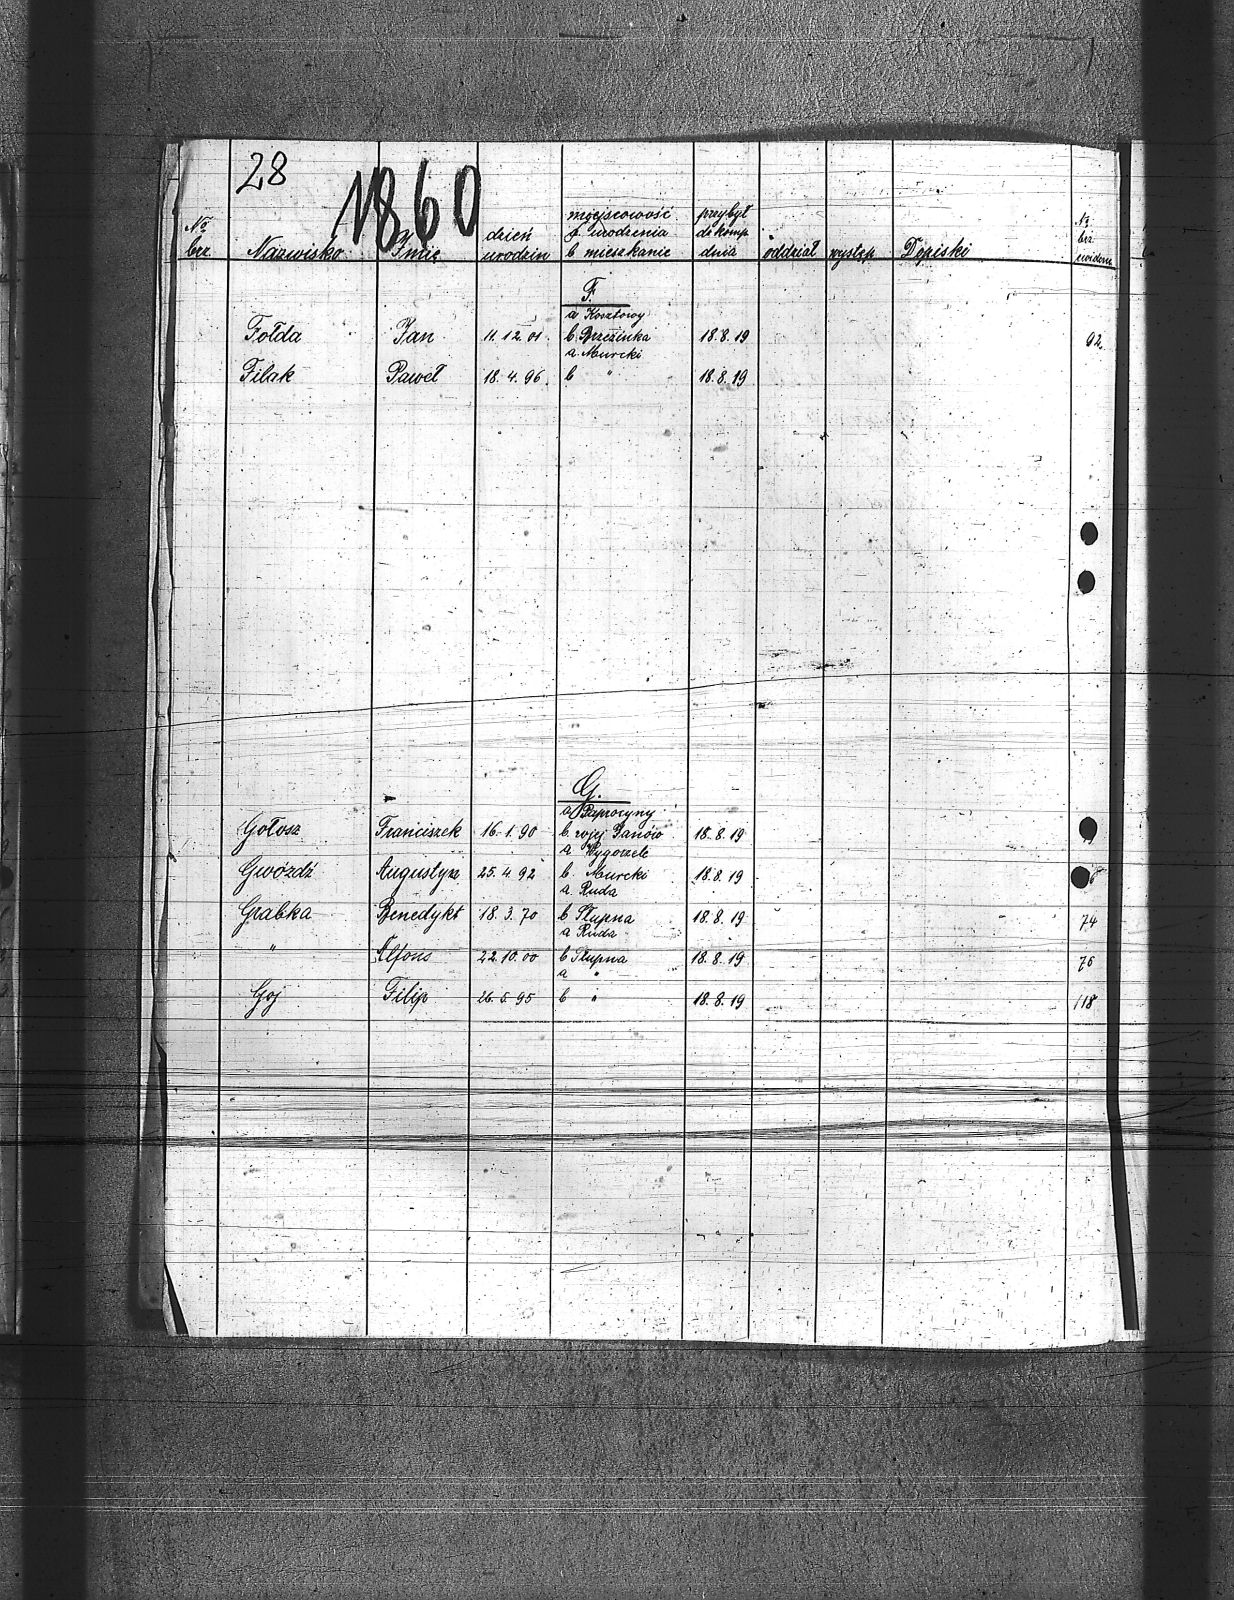 28
1860
No bez. Nazwisko Imię dzień urodzin miejscowość a urodzenia b mieszkanie przybył di komp. dnia oddział występ Dopiski No bież. ewidenc.
F.
a Kosztowy
Fołda Jan 11.12.01. b Brzezinka 18.8.19 92
a Murcki
Filak Paweł 18.4.96. b " 18.8.19
G.
a Paprocyny
Gołosz Franciszek 16.1.90 b Janów 18.8.19
a Wygorzele
Gwóźdź Augustyn 25.4.92 b. Murcki 18.8.19
a Ruda
Grabka Benedykt 18.3.70 b Słupna 18.8.19 74
a Ruda
" Alfons 22.10.00 b Słupna 18.8.19 76
a "
Goj Filip 26.5.95 b " 18.8.19 118